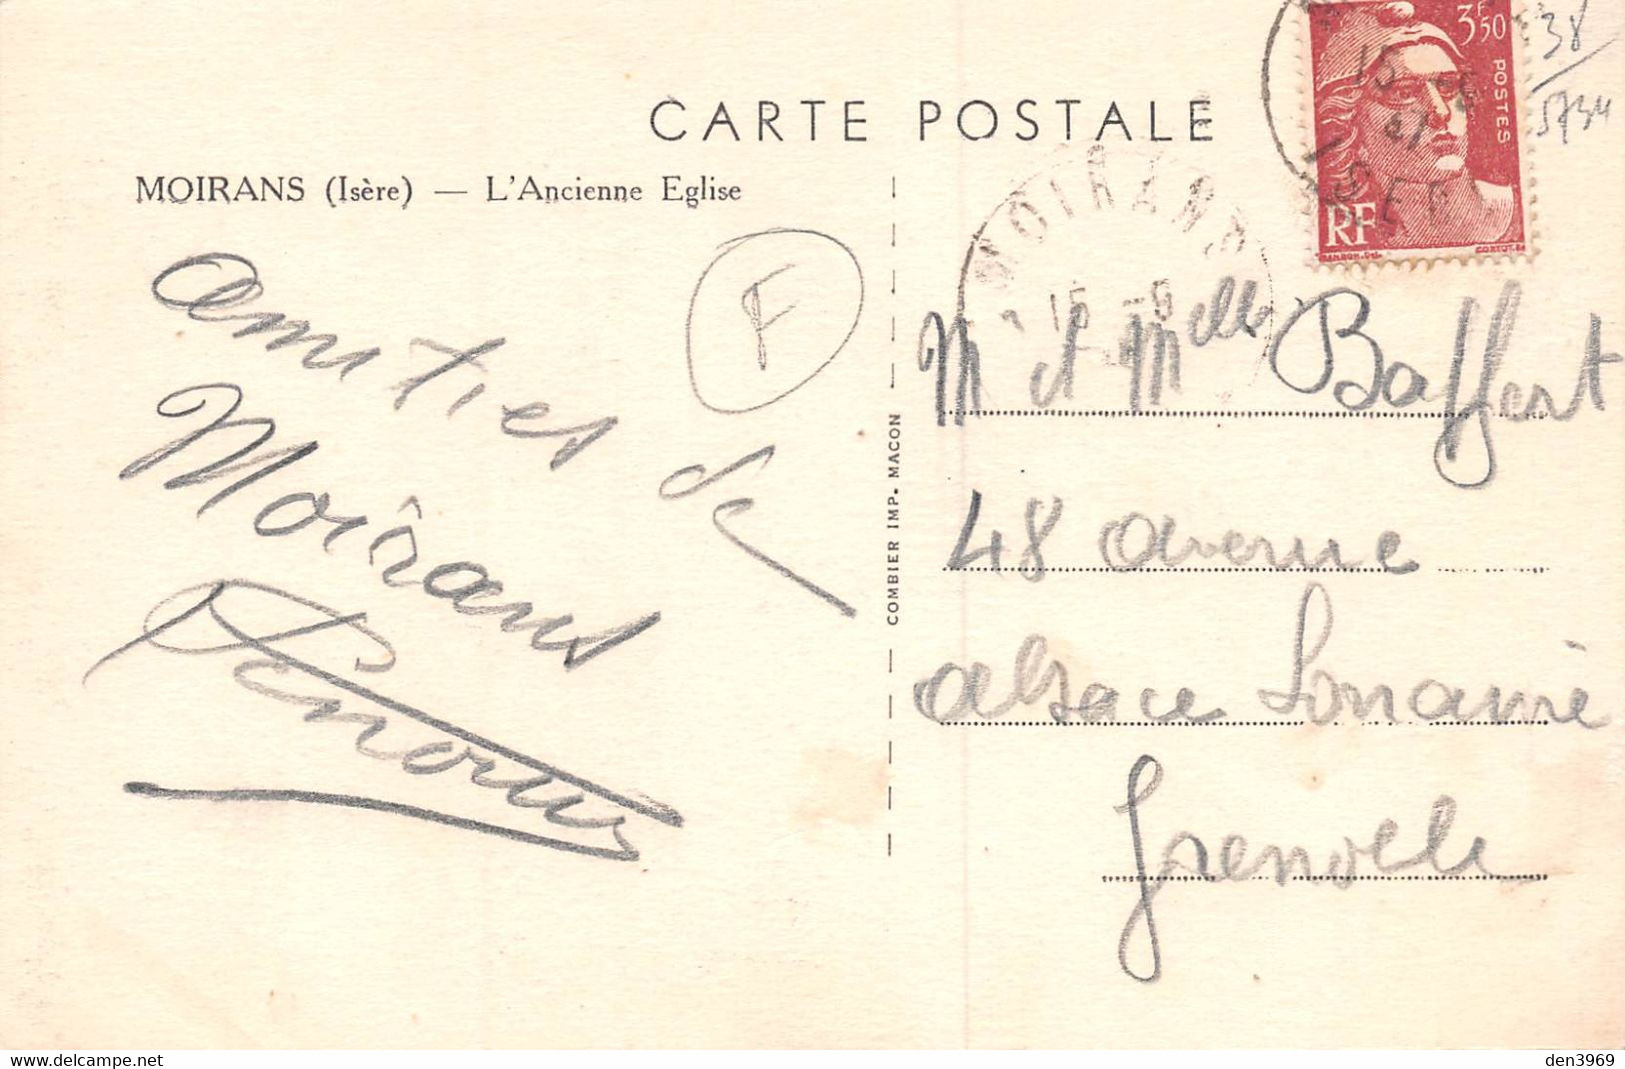 CARTE POSTALE
MOIRANS (Isère) — L'Ancienne Eglise
amitiés de
Moirans
F
COMBIER IMP. MACON
3F50
POSTES
RF
38
5734
MOIRANS
15 -6
15 -6
47
ISERE
M et Melle Baffert
48 avenue
alsace Lorraine
Grenoble
www.delcampe.net
den3969